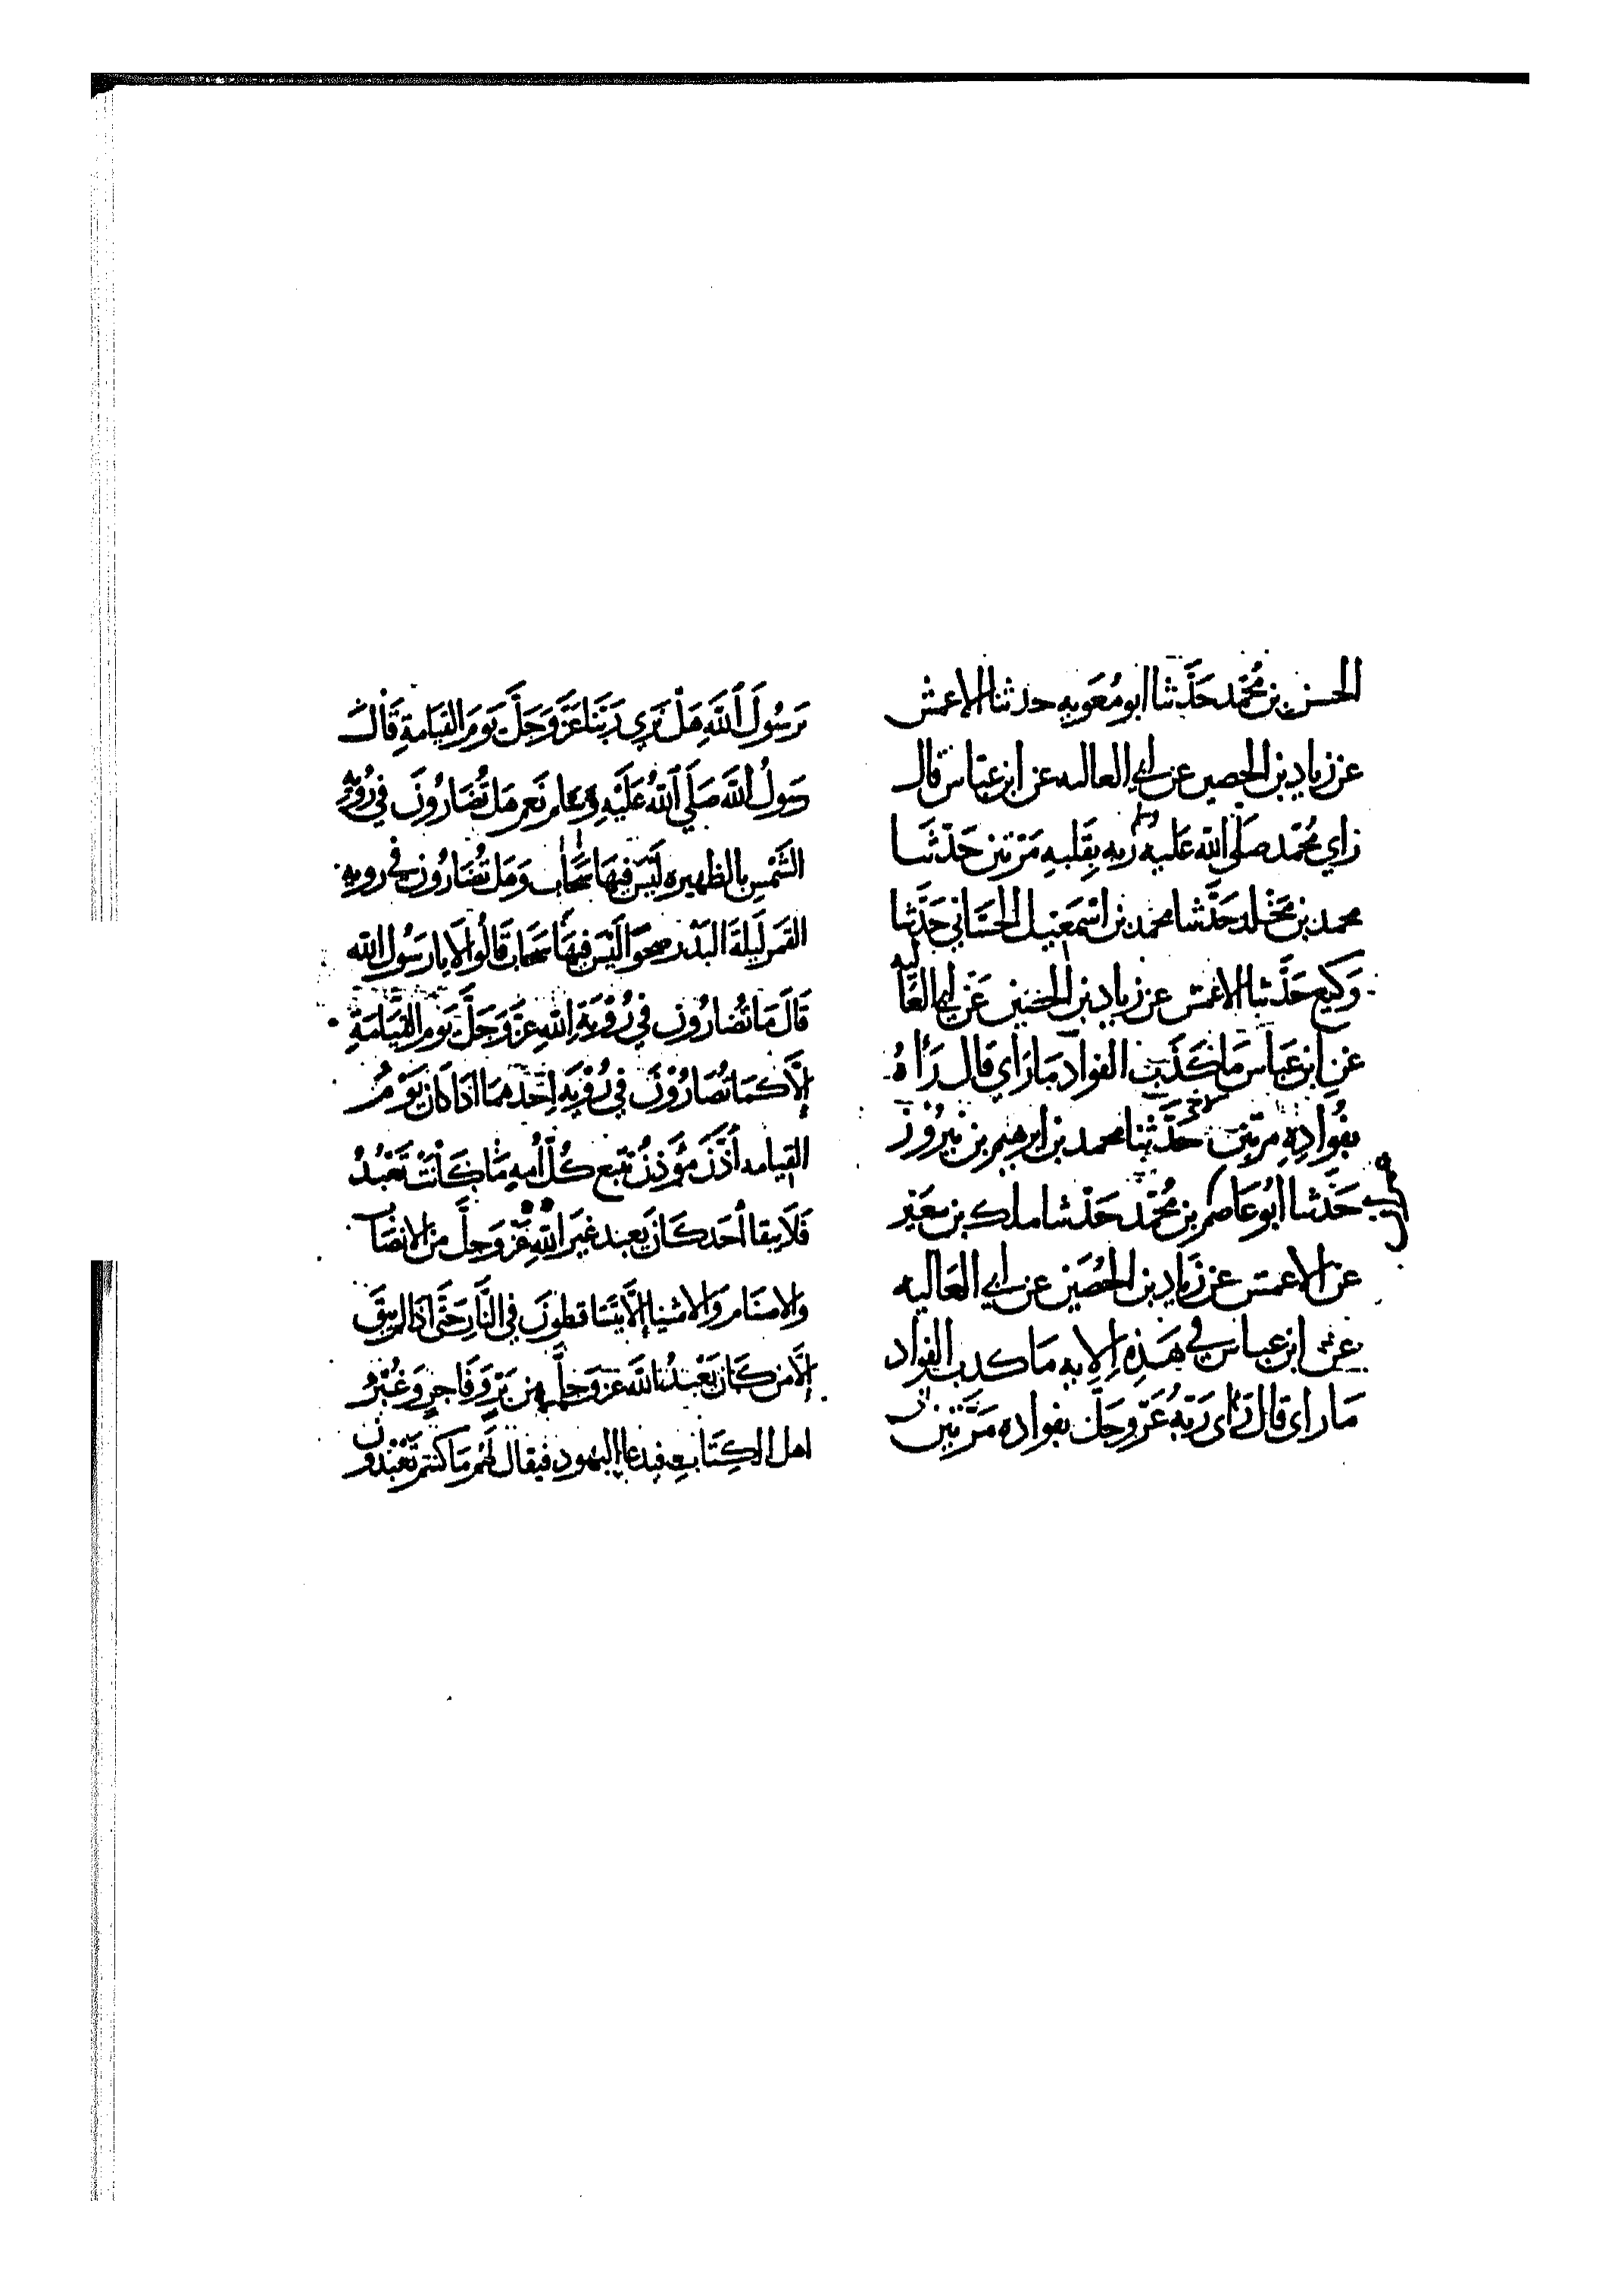 الحسن بن مُحَمَّد حَدَّثنا ابو مُعَويه حدثنا الاعمش
عن زياد بن الحصين عن ابي العاليه عن ابن عبّاس قال
رَاي مُحَمّد صَلّى الله عَليه وسلم ربه بِقَلبِهِ مَرّتين حَدّثنَا
محمد بن مَخْلد حَدَّثنا محمد بن اسْمَعِيل الحَسَّاني حَدَّثنا
وَكيع حَدَّثنا الاعمش عن زياد بن الحُصَين عَن ابي العَاليه
عَنِ ابن عَبّاس مَا كَذَبَ الفواد مَا رَاي قَال رَاهُ
بفُوادِهِ مرتين حَدَّثنا محمد بن ابرهيم بن نيرُوز
حَدَّثنا ابُو عَاصم بن مُحَمّد حَدّثنا ملك بن سعَير
عن الاعمش عن زياد بن الحُصَين عن ابي العَاليه
عن ابن عباس في هَذِهِ الايه مَا كذب الفواد
مَا راى قال رَاى رَبّهُ عَزّ وجَلّ بفواده مَرَّتين
يَرسُولَ اللَّهِ هَلْ نَرى رَبَّنَا عَزَّ وَجَلَّ يَومَ القِيَامَةِ قَالَ
رَسُولُ اللَّه صَلَّي اللَّهُ عَلَيْهِ وَسَلم نَعَم هَل تُضَارُّونَ فِي رُؤيَةِ
الشَّمْسِ بِالظهيره لَيْسَ فِيهَا سَحَاب وَهَل تُضَارُّونَ في رويه
القَمَر لَيلَةَ البَدْر صحوًا لَيْسَ فِيهَا سَحَاب قَالُوا لَا يا رَسُول الله
قَالَ مَا تُضَارُّون فِي رُؤْيَةِ اللهِ عَزَّ وَجَلَّ يَوم القِيَامَةِ
إلَّا كَمَا تُضَارُّوْنَ فِي رُؤْيَةِ إحْدَهمَا اذَا كَان يَوْمُ
القيامه أذَّنَ مُؤَذِنٌ تَتبع كُلّ أُمه مَا كَانَتْ تَعْبُدُ
فَلَا يبقا أحَد كَانَ يَعبد غيَر اللَّهِ عَزّ وَجلَّ من الانصَاب
والاصنَام وَالاشيا إلَّا يَتَسَاقطونَ فِي النَّارِ حَتَّى اذَا لم يبقَ
إلَّا مَن كَانَ يَعْبُدُ اللَّهَ عَز وَجلَّ مِن بَرٍّ وَفَاجرٍ وَغُبَّرُ
اهل الكِتَابِ فيدعا اليهود فيقال لَهُم مَا كنتم تَعْبُدُون